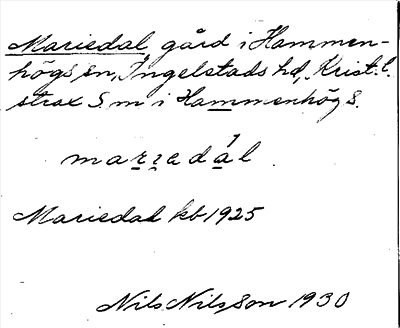 Mariedal, gård i Hammen-
högs sn, Ingelstads hd, Krist. l.
strax S. m i Hammenhög S.
mariedál
Mariedal kb 1925
Nils Nilsson 1930